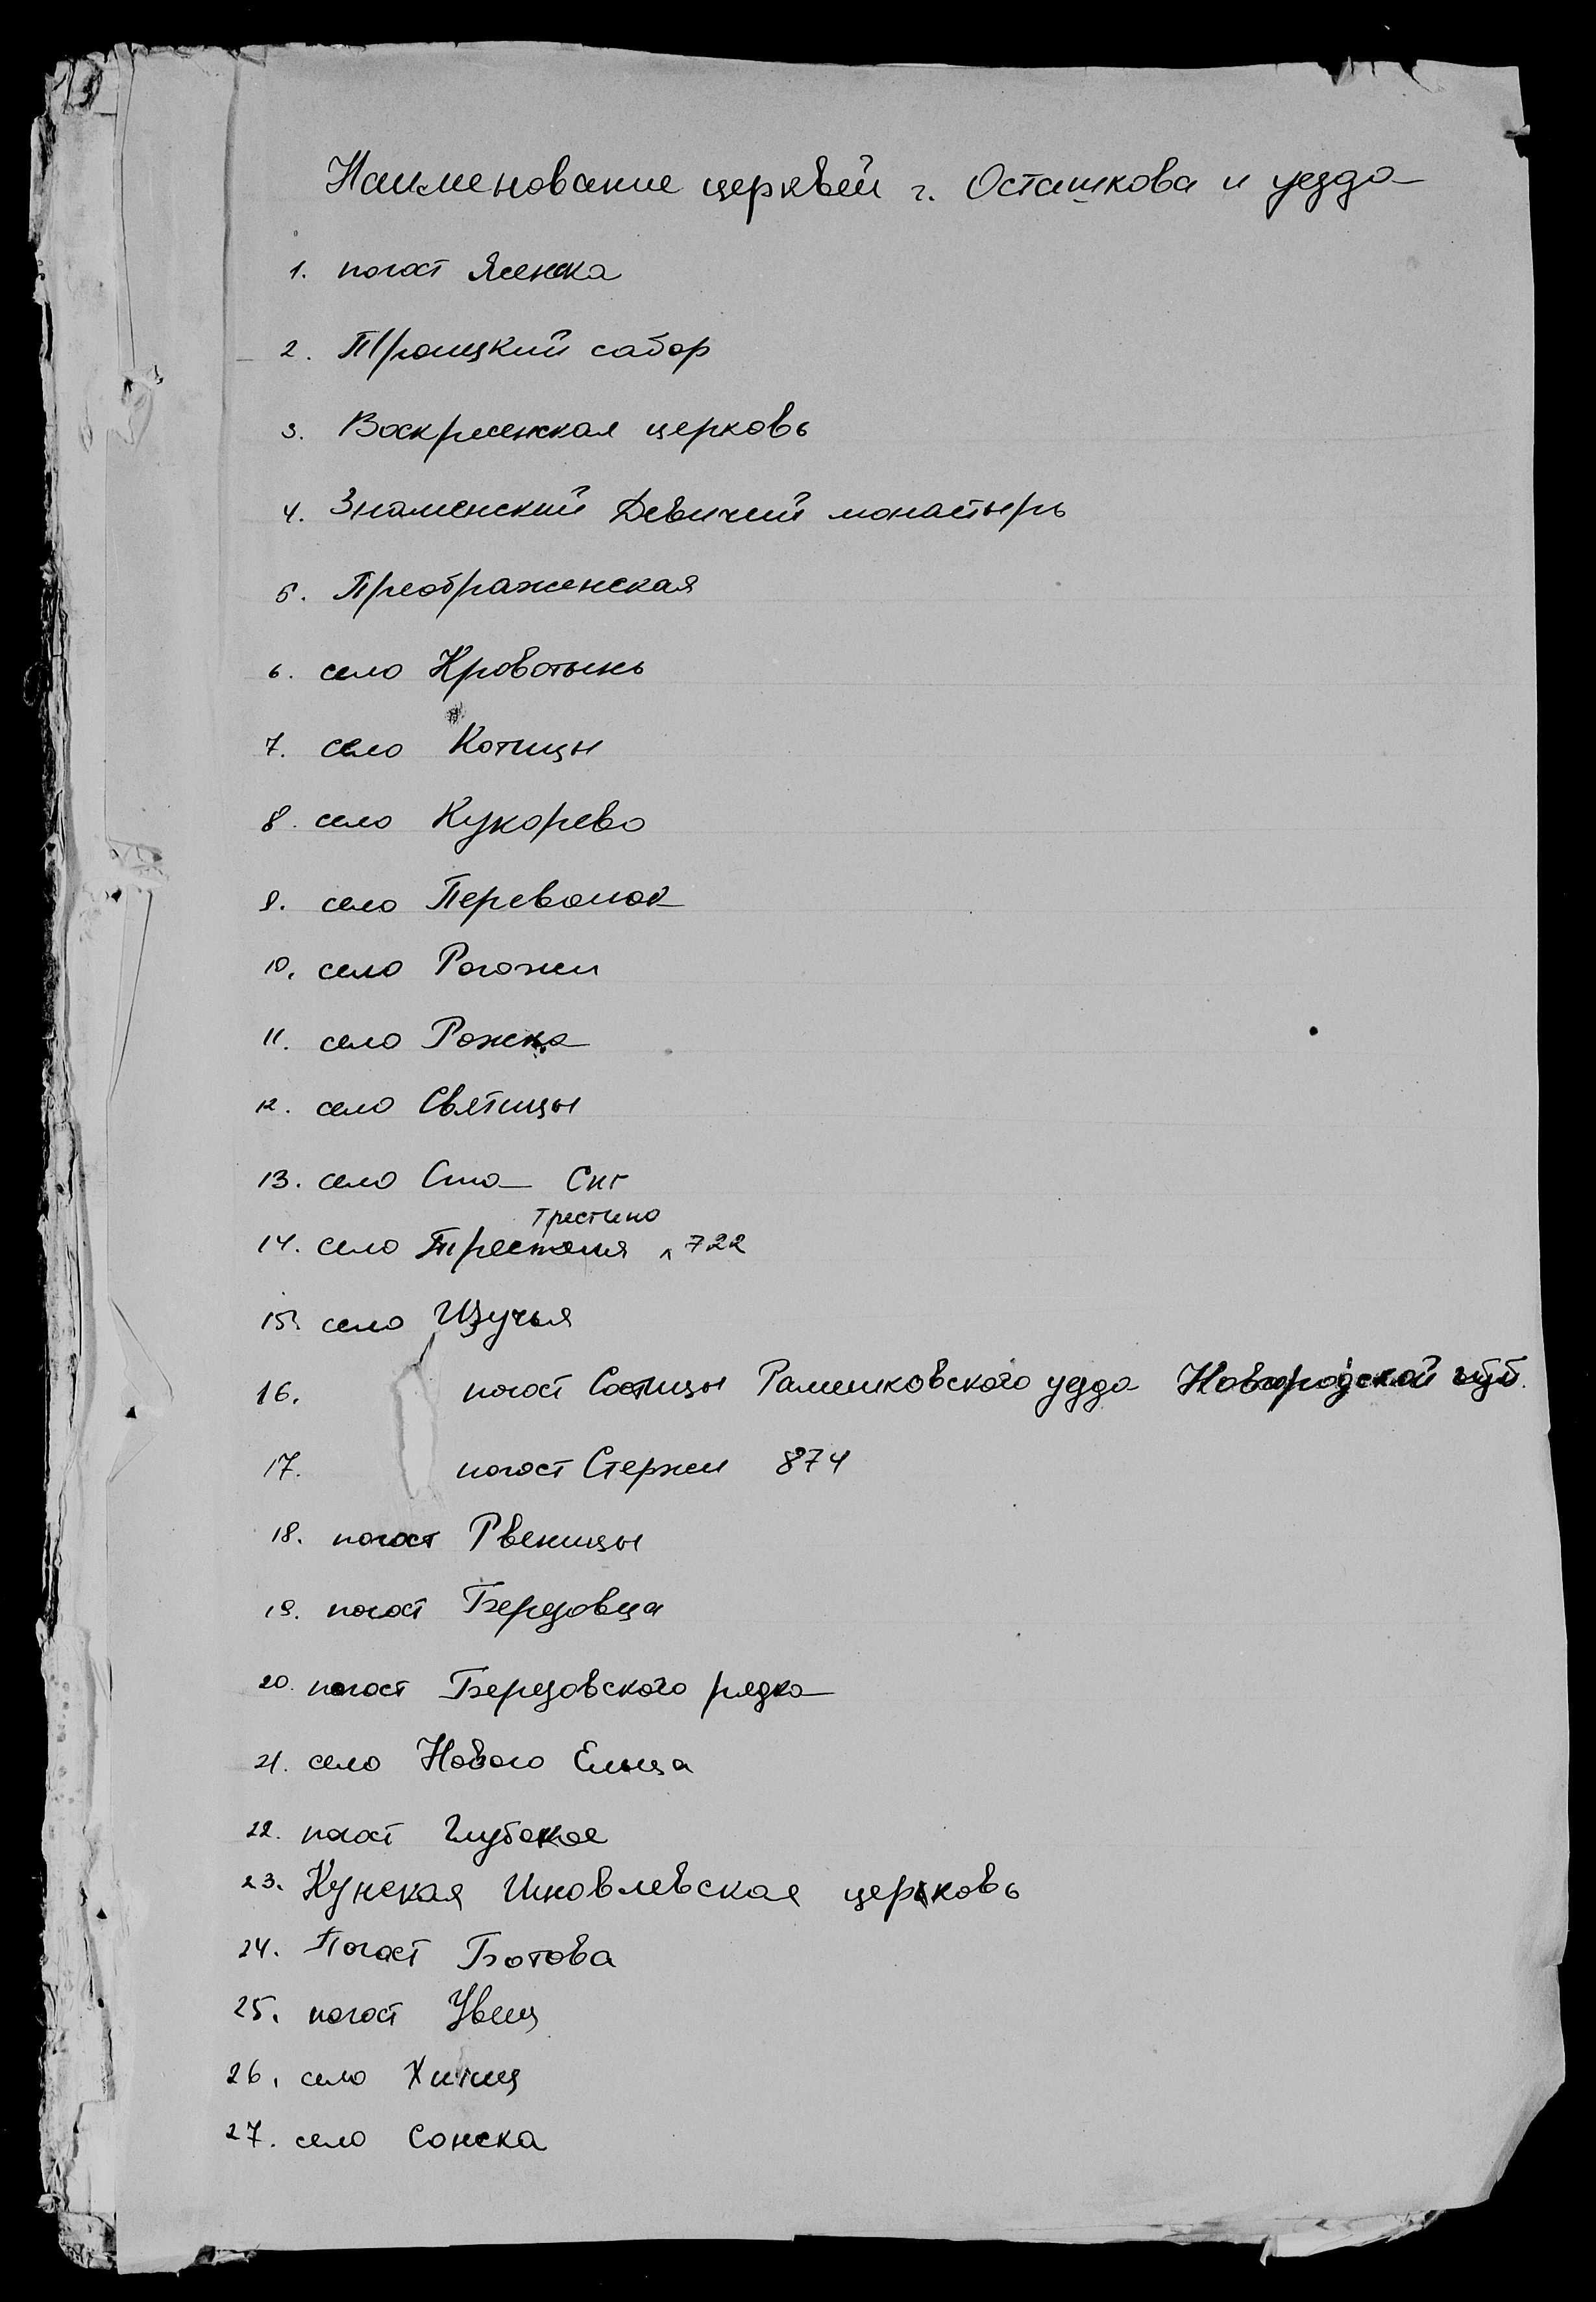 Наименование церквей г. Осташкова и уезда
1. погост Ясенка
2. Троицкий сабор
3. Воскресенская церковь
4. Знаменский Девичий монастырь
5. Преображенская
6. село Кровотынь
7. село Котицы
8. село Кукорево
9. село Переволок
10. село Рогожи
11. село Рожка
12. село Святицы
13. село Сига Сиг
Трестино
14. село 722
15. село Щучья
16. погост Сопицы уезда Новгородской губ.
17. погост Стержи 874
18. погост Рвеницы
19. погост Березовца
20. погост Березовского рядка
21. село Нового Ельца
22. погост Глубокое
23. Кунская Ияковлевская церковь
24. Погост Ботова
25. погост Увиц
26. село Хитиц
27. село Сонска